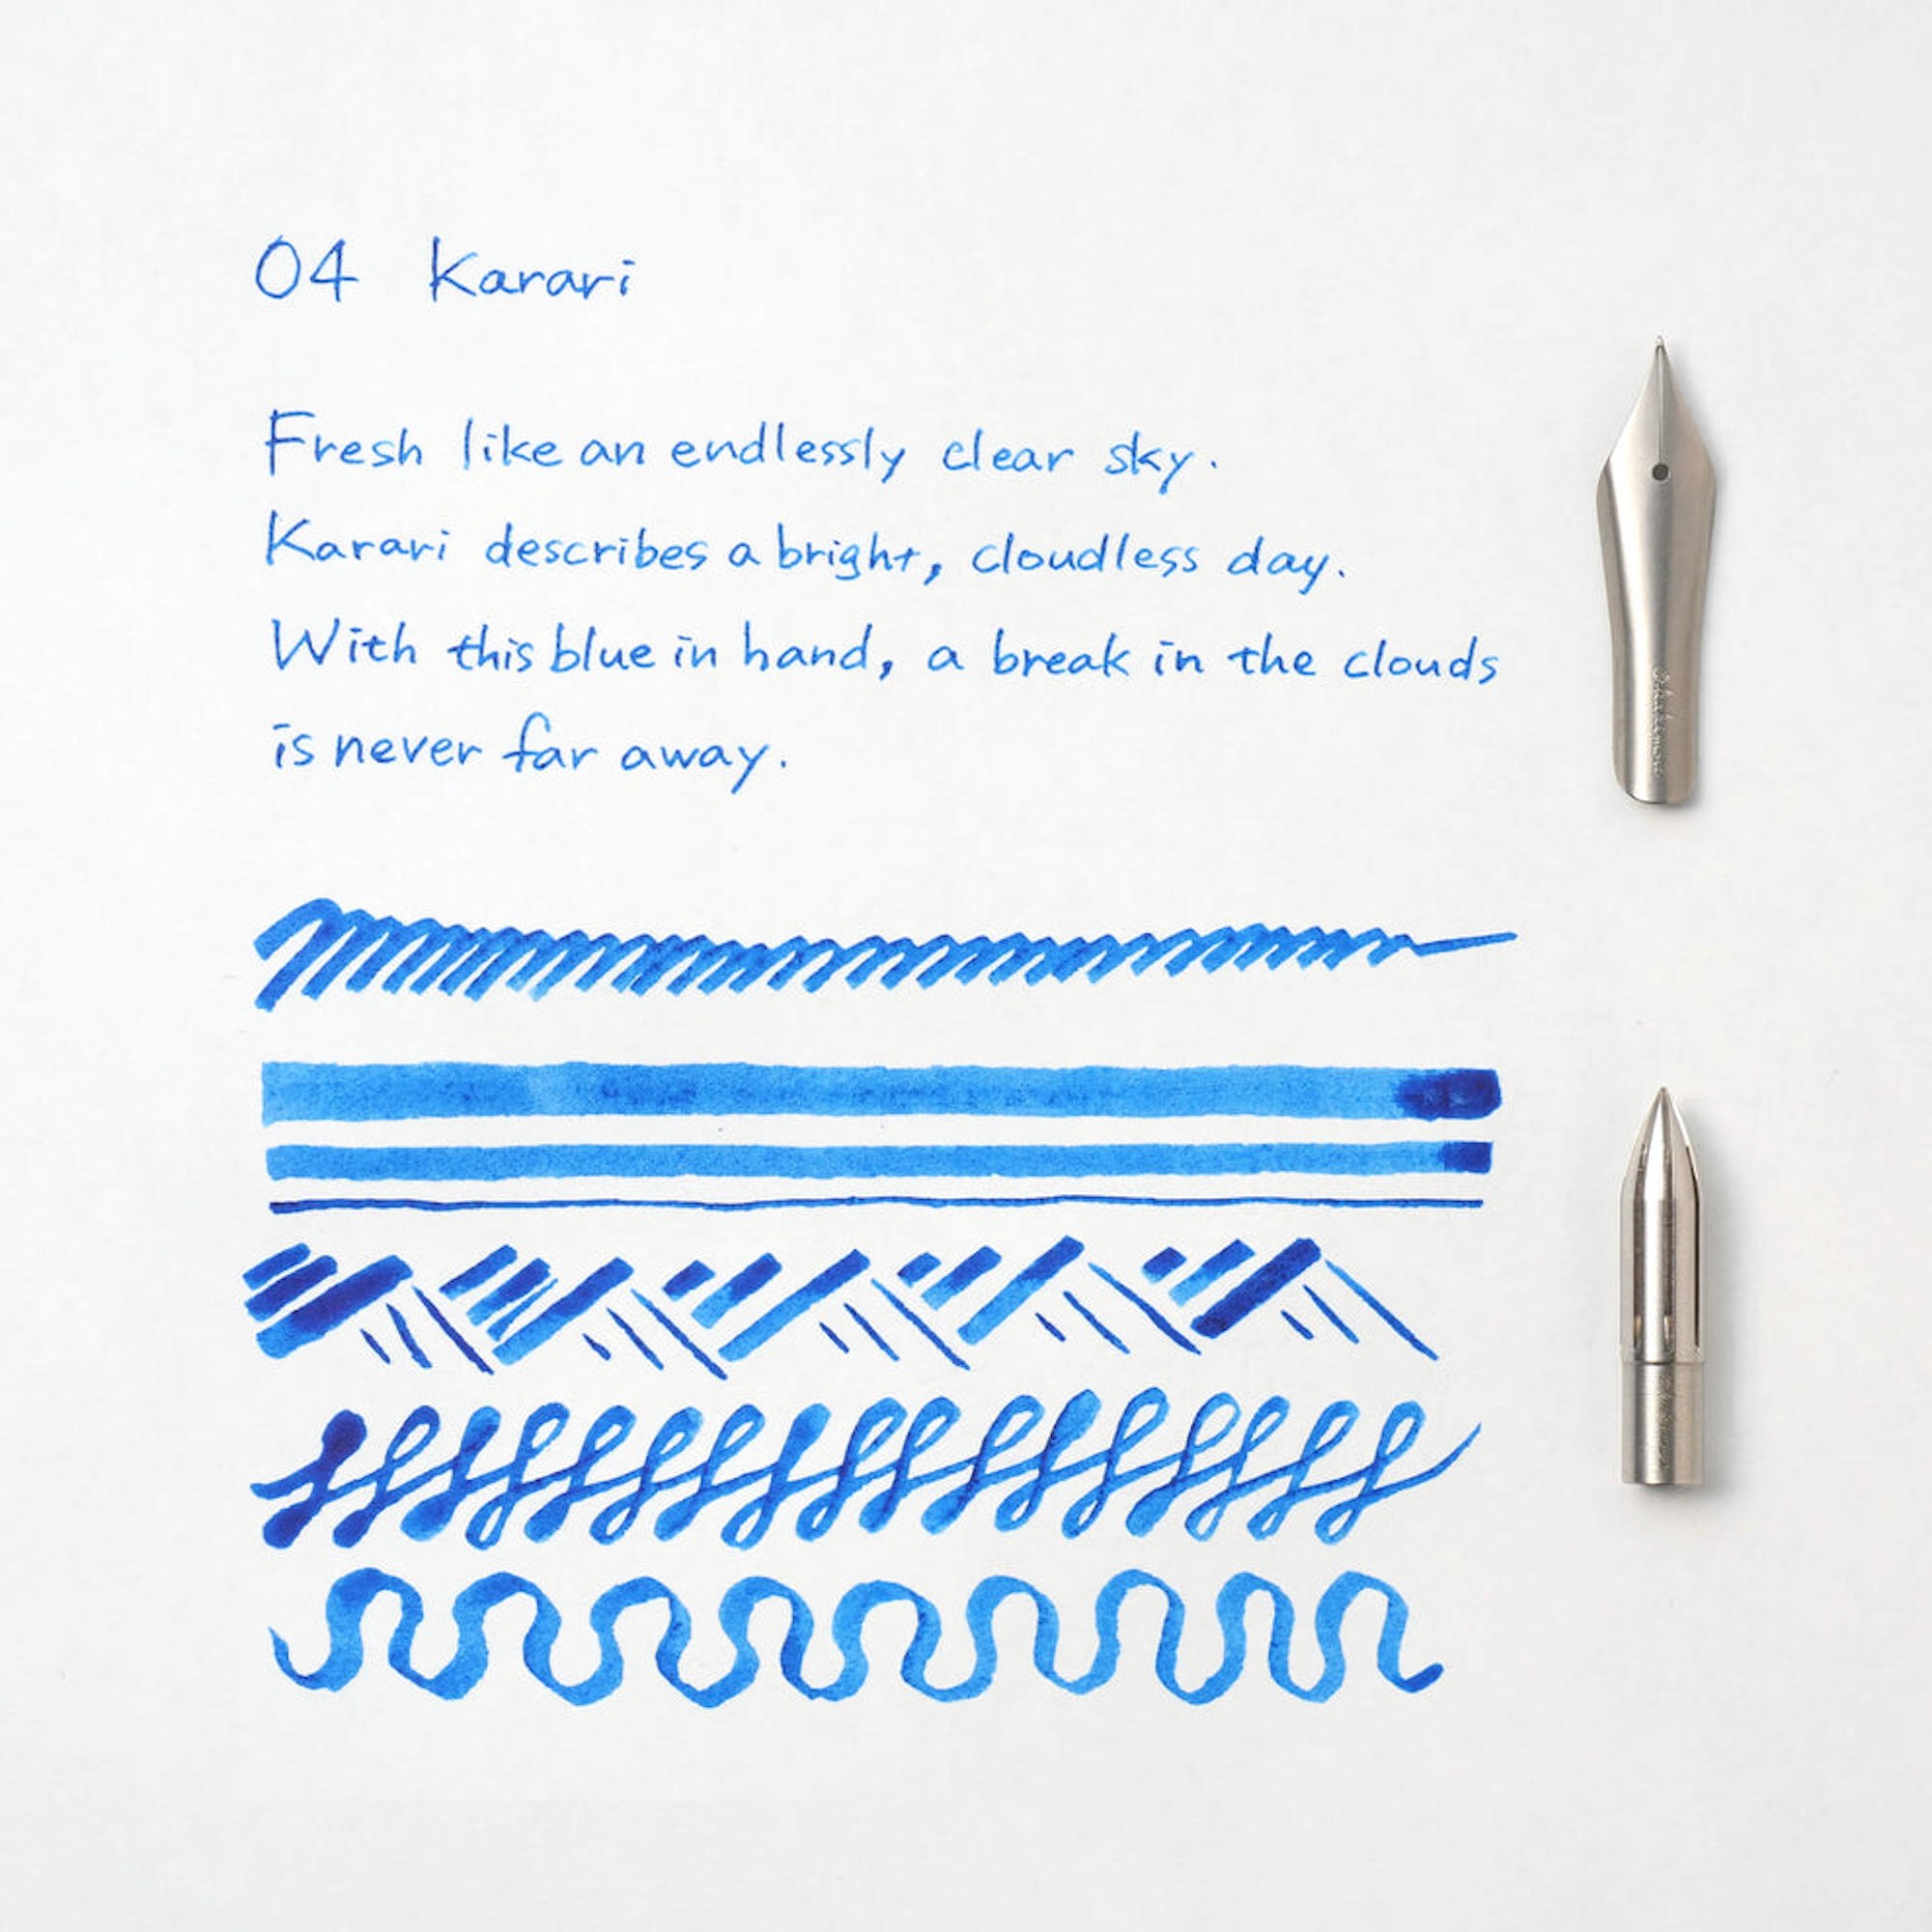 04 Karari
Fresh like an endlessly clear sky.
Karari describes a bright, cloudless day.
With this blue in hand, a break in the clouds
is never far away.